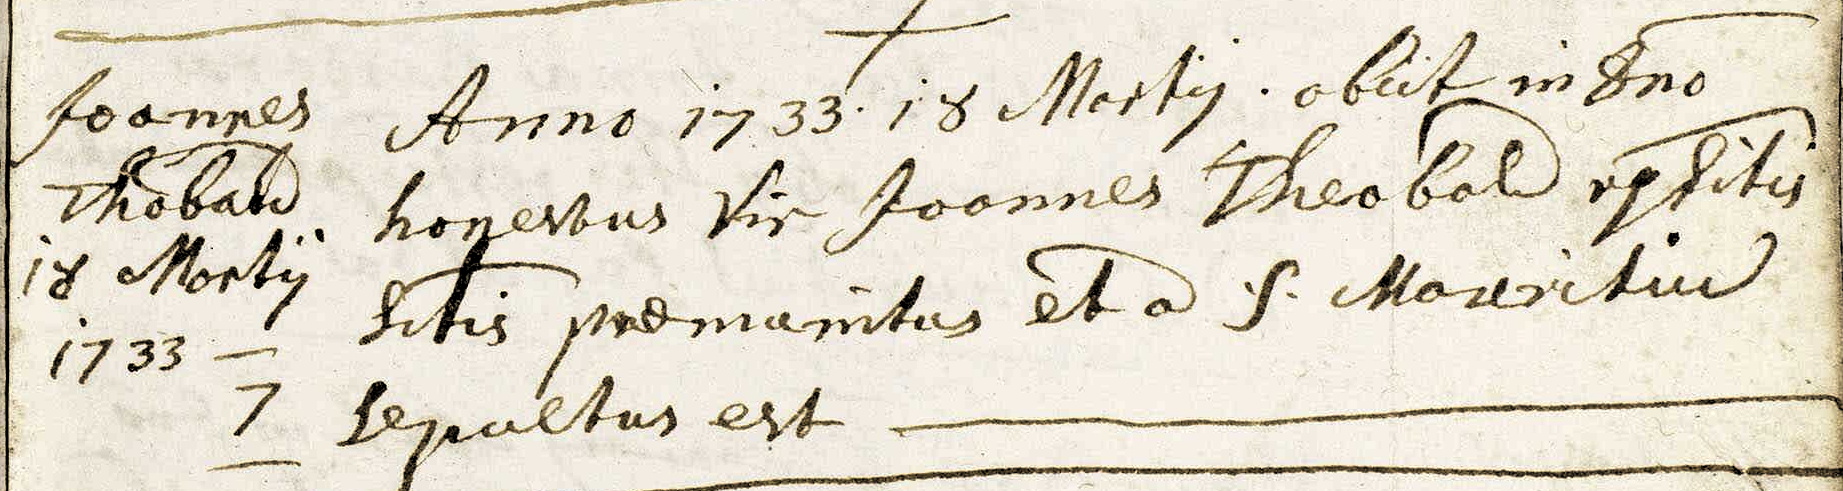 Joannes
Thobald
18 Martij
1733
7
Anno 1733. 18 Martij. obiit in Dno
honestus Vir Joannes Theobald
sctis præmunitus et a S. Mauritiu
sepultus est